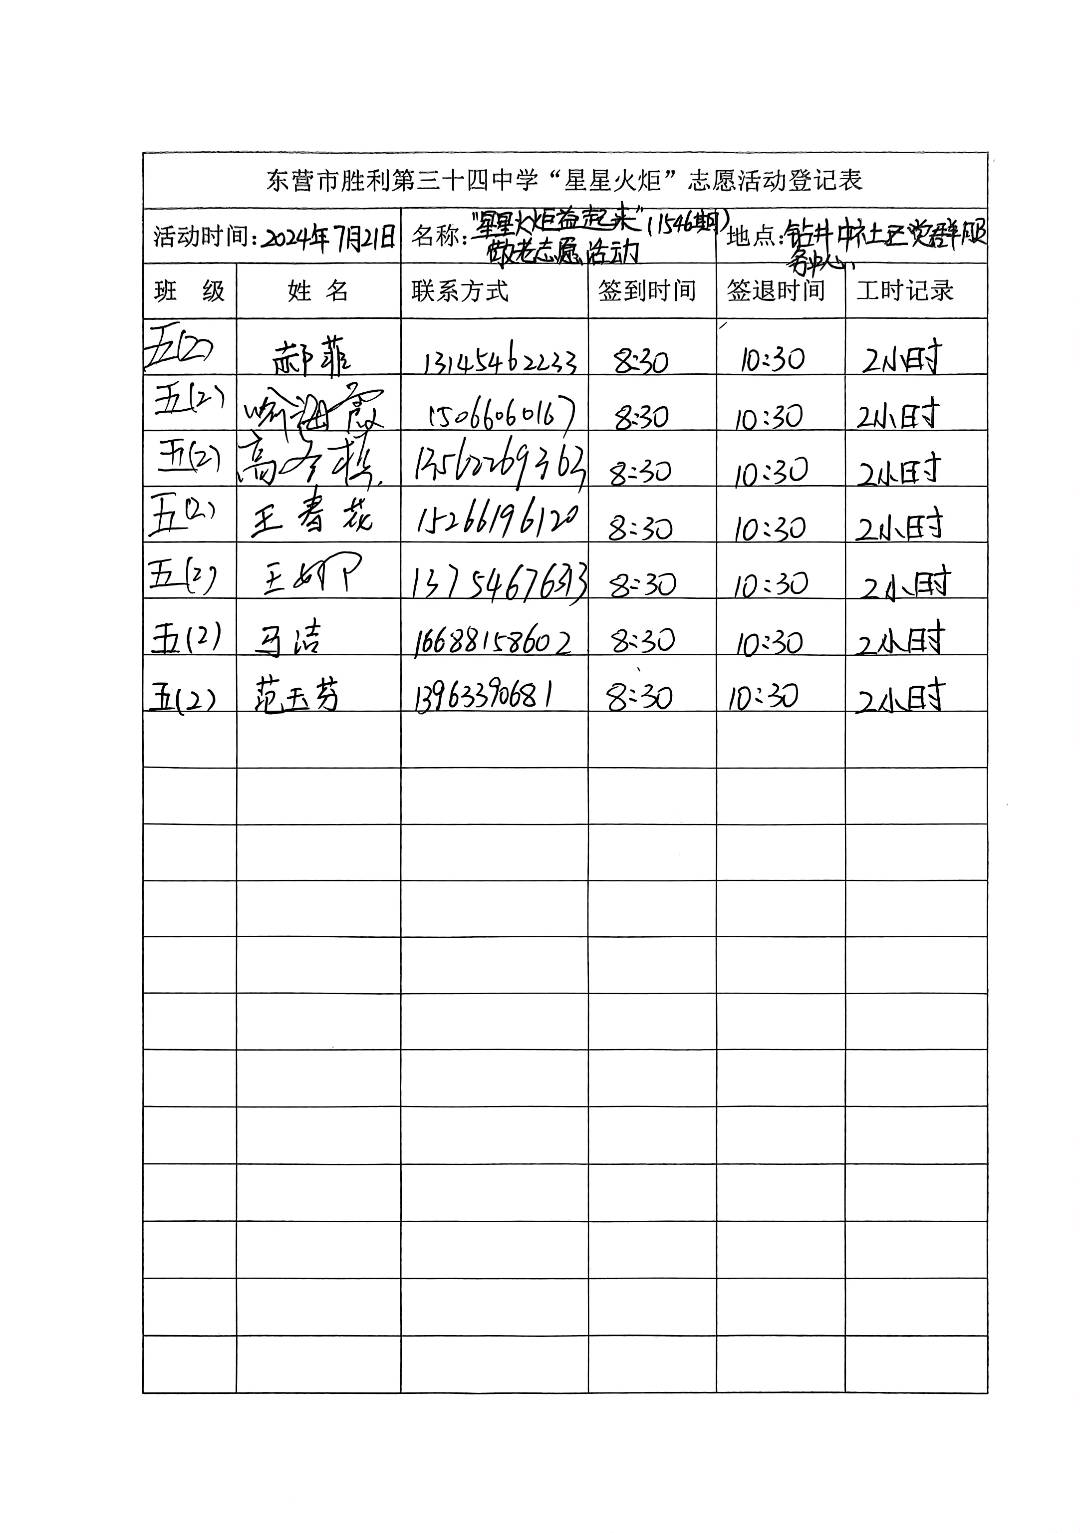 东营市胜利第三十四中学“星星火炬”志愿活动登记表
活动时间:2024年7月21日 名称:“星星火炬益起来”(1546期) 地点:钻井中社区党群服
敬老志愿活动 务中心
班 级 姓 名 联系方式 签到时间 签退时间 工时记录
五(2) 郝菲 13145462233 8:30 10:30 2小时
五(2) 喻海霞 15066060167 8:30 10:30 2小时
五(2) 高冬梅 13562269363 8:30 10:30 2小时
五(2) 王春花 15266196120 8:30 10:30 2小时
五(2) 王 8:30 10:30 2小时
五(2) 马洁 16688158602 8:30 10:30 2小时
五(2) 范玉芬 13963390681 8:30 10:30 2小时